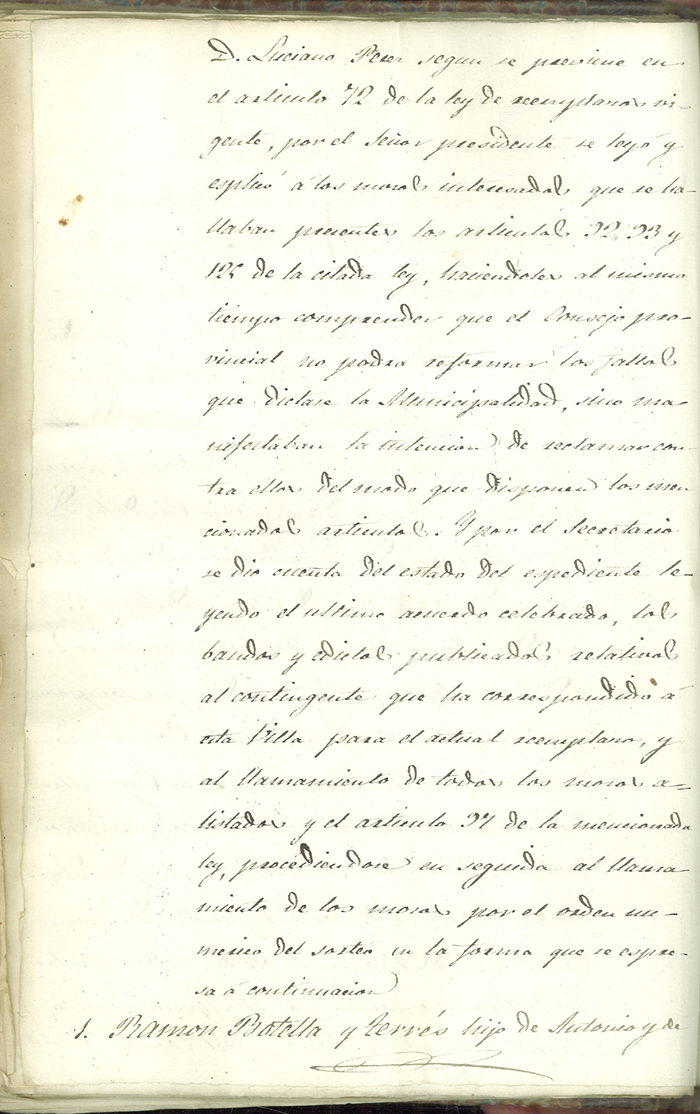 D. Luciano Perez segun se previene en
el articulo 72 de la ley de reemplazos vi-
gente, por el Señor presidente se leyó y
esplicó á los mozos interesados que se ha-
llaban presentes los articulos 92, 93 y
126 de la citada ley, haciendoles al mismo
tiempo comprender que el Consejo pro-
vincial no podra reformar los fallos
que dictase la Municipalidad, sino ma-
nifestaban la intencion de reclamar con-
tra ellos del modo que disponen los men-
cionados articulos. Y por el Secretario
se dio cuenta del estado del espediente le-
yendo el ultimo acuerdo celebrado, los
bandos y edictos publicados relativos
al contingente que ha correspondido á
esta Villa para el actual reemplazo, y
al llamamiento de todos los mozos a-
listados y el articulo 97 de la mencionada
ley, procediendose en seguida al llama-
miento de los mozos por el orden nu-
merico del sorteo en la forma que se espre-
sa á continuacion
1. Ramon Botella y Terrés hijo de Antonio y de